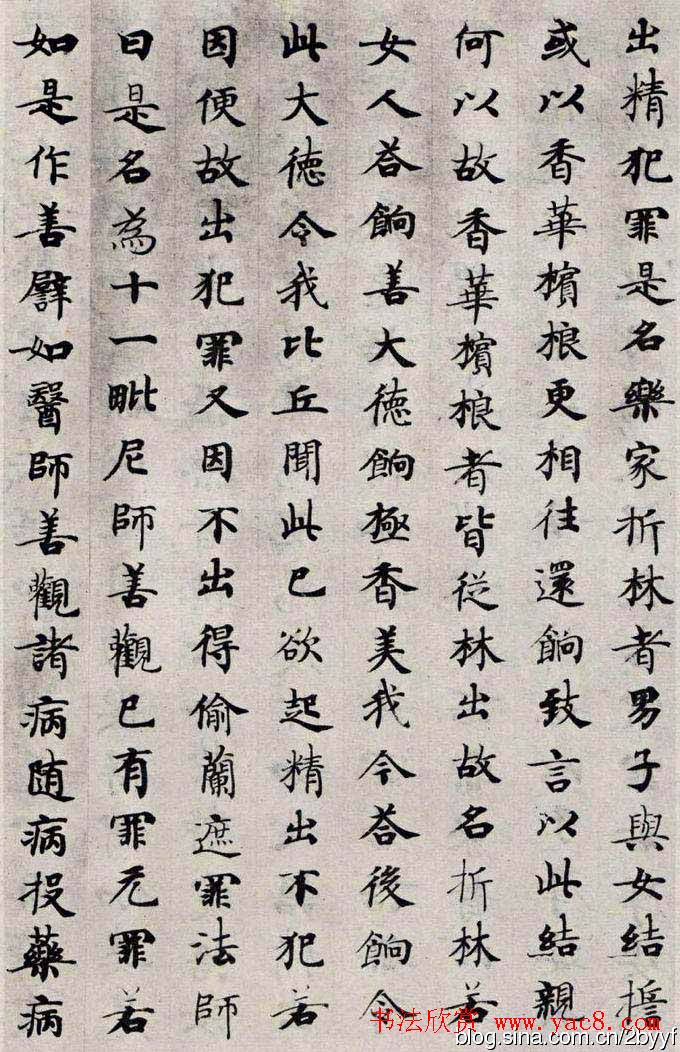 出精犯罪是名樂家折林者男子與女結誓
或以香華檳榔更相往還餉致言以此結親
何以故香華檳榔者皆從林出故名折林若
女人荅餉善大德餉極香美我今荅後餉令
此大德令我比丘聞此已欲起精出不犯若
因便故出犯罪又因不出得偷蘭遮罪法師
曰是名為十一毗尼師善觀已有罪无罪若
如是作善譬如醫師善觀諸病随病投藥病
书法欣赏 www.yac8.com
blog.sina.com.cn/2byyf